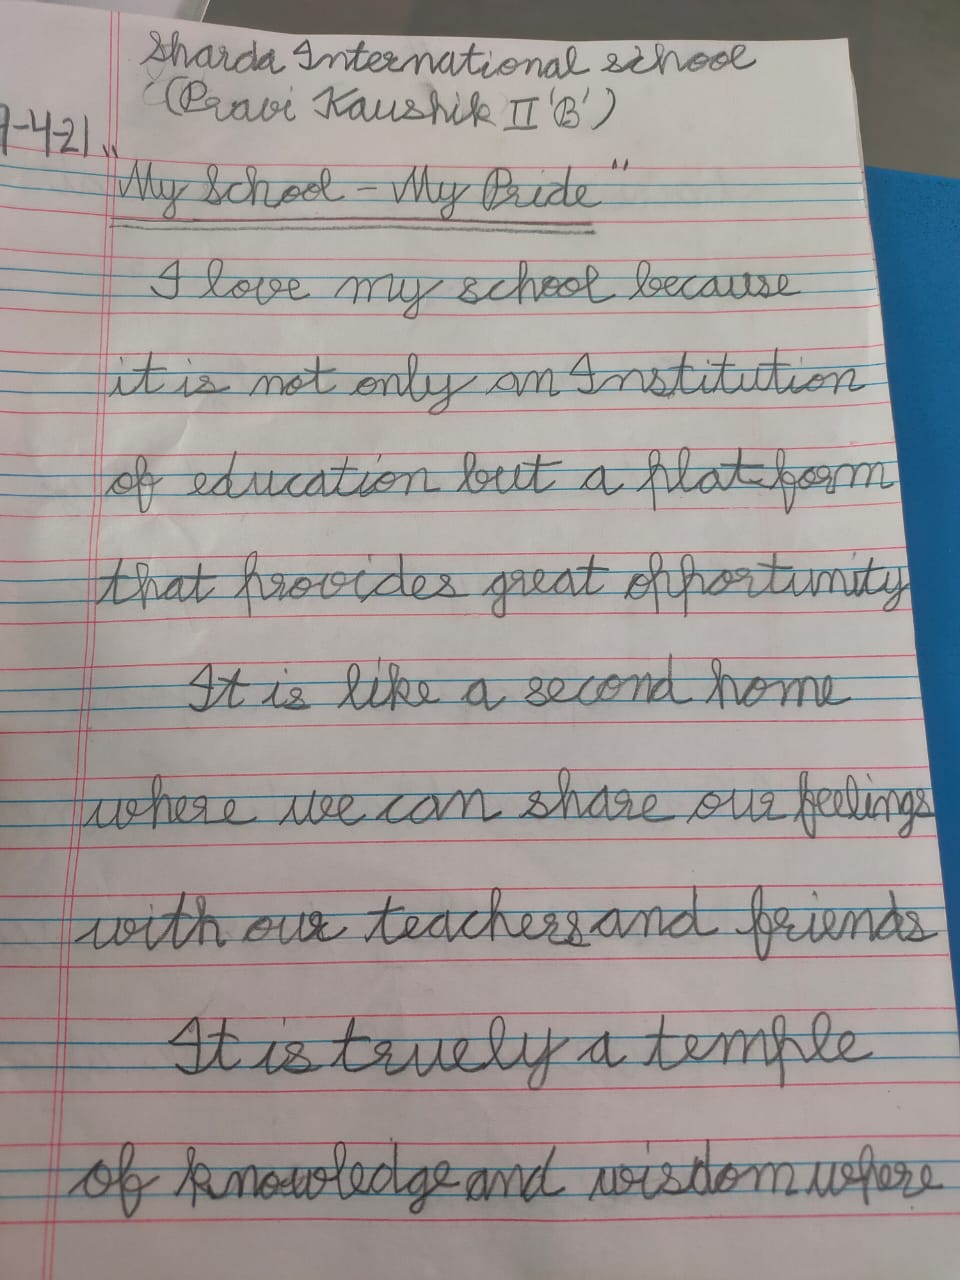 Sharda International school
(Pravi Kaushik II 'B')
9-4-21
"My School - My Pride"
I love my school because
it is not only an Institution
of education but a platform
that provides great opportunity
It is like a second home
where we can share our feelings
with our teachers and friends
It is truely a temple
of knowledge and wisdom where